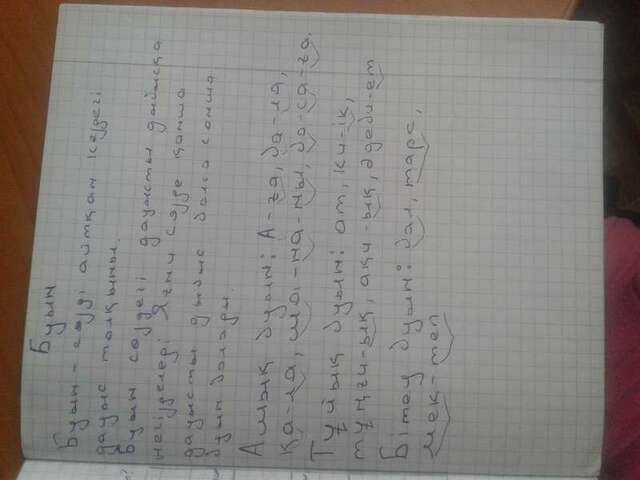 Буын
Буын - сөзді айтқан кездегі
дауыс толқыны.
Буын сөздегі дауысты дыбысқа
негізделеді. Яғни сөзде қанша
дауысты дыбыс болса сонша
буын болады.
Ашық буын: А-ға, да-ла,
қа-ла, ма-на-ны, ба-са-ға,
Тұйық буын: ат, ки-ік,
тұңғи-ық, ақи-ық, әдеби-ет
Бітеу буын: бал, тарс,
мек-теп